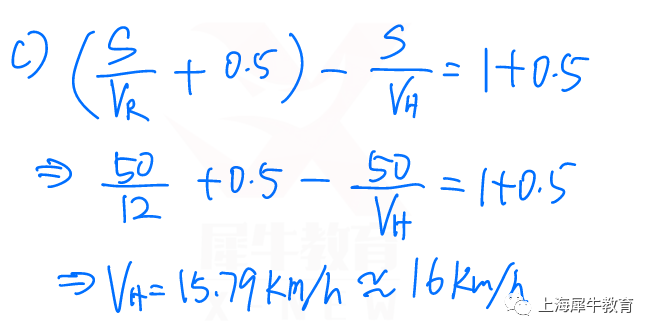 c) (S/V_R + 0.5) - S/V_H = 1+0.5
⇒ 50/12 + 0.5 - 50/V_H = 1+0.5
犀牛教育
⇒ V_H = 15.79 km/h ≈ 16 km/h
上海犀牛教育